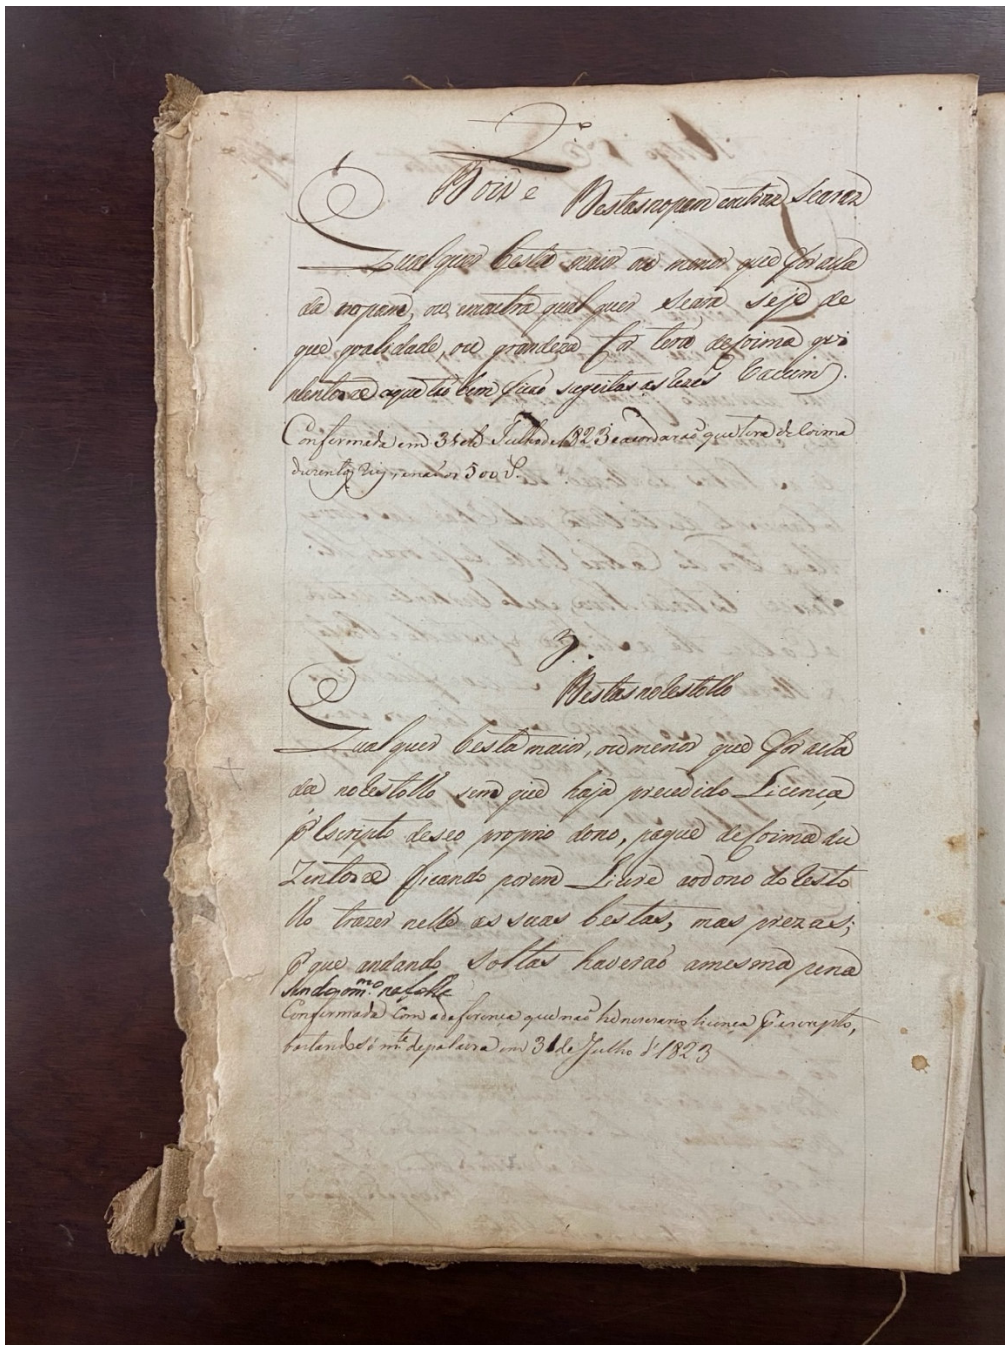 2
Bois e Bestas no pam eoutras Searas
Qualquer besta maior ou menor que for axa
da no pam, ou em outra qualquer seara seje de
que qualidade, ou grandeza for terá de coima qui
nhentos rs aque tão bem ficão sugeitas as rezes Vacum.
Confirmada em 31 de Julho de 1823 e acordarão que tera de Coima
duzentos reis, e não os 500 rs.
3.
Bestas no Restollo
Qualquer besta maior, ou menor que for axa
da no Restollo sem que haja precedido Licença
pr Escripto de seo proprio dono, pague de Coima du
Zentos rs ficando porem Livre ao dono do Resto
llo trazer nelle as suas bestas, mas prezas;
pr que andando soltas haverão a mesma pena
Confirmada Com a deferença que não he necesario licença pr escripto,
bastando só mte de palavra em 31 de Julho d'1823